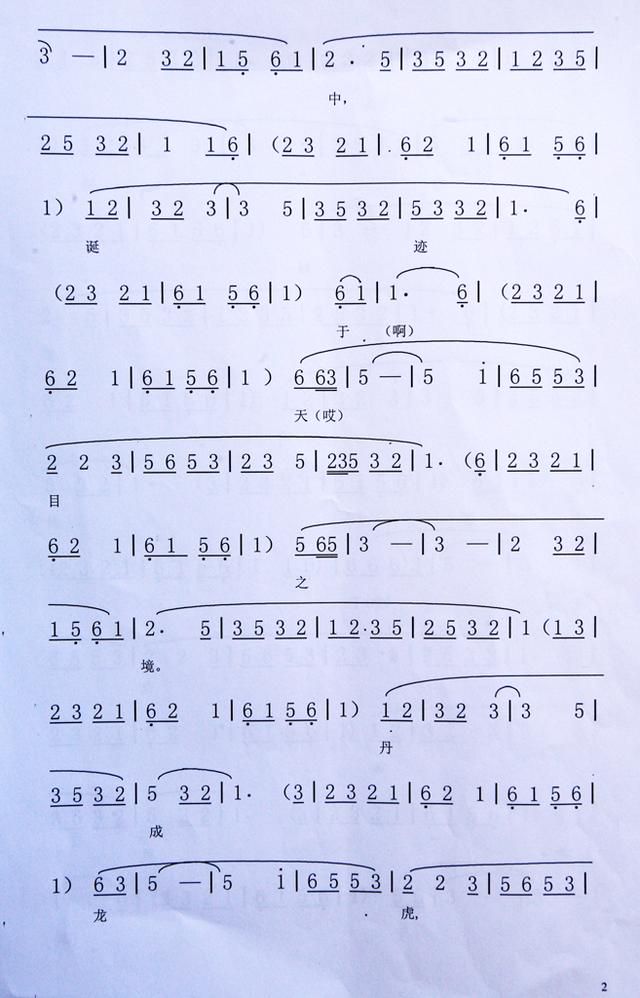 3 — | 2 3 2 | 1 5 6 1 | 2 · 5 | 3 5 3 2 | 1 2 3 5 |
中,
2 5 3 2 | 1 1 6 | (2 3 2 1 | 6 2 1 | 6 1 5 6 |
1) 1 2 | 3 2 3 | 3 5 | 3 5 3 2 | 5 3 3 2 | 1 · 6 |
诞 迹
(2 3 2 1 | 6 1 5 6 | 1) 6 1 | 1 · 6 | (2 3 2 1 |
于 (啊)
6 2 1 | 6 1 5 6 | 1) 6 63 | 5 — | 5 i | 6 5 5 3 |
天(哎)
2 2 3 | 5 6 5 3 | 2 3 5 | 235 3 2 | 1 · (6 | 2 3 2 1 |
目
6 2 1 | 6 1 5 6 | 1) 5 65 | 3 — | 3 — | 2 3 2 |
之
1 5 6 1 | 2 · 5 | 3 5 3 2 | 1 2 · 3 5 | 2 5 3 2 | 1 (1 3 |
境。
2 3 2 1 | 6 2 1 | 6 1 5 6 | 1) 1 2 | 3 2 3 | 3 5 |
丹
3 5 3 2 | 5 3 2 | 1 · (3 | 2 3 2 1 | 6 2 1 | 6 1 5 6 |
成
1) 6 3 | 5 — | 5 i | 6 5 5 3 | 2 2 3 | 5 6 5 3 |
龙 虎,
2